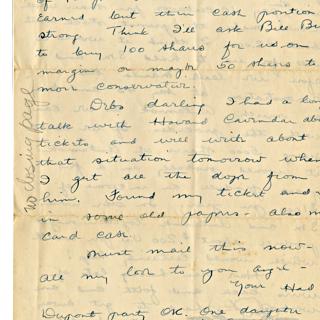 earned but it in cash position
strong. Think I'll ask Bill
to buy 100 shares for us on
margin or maybe 50 shares to
more conservative.
Debs darling I had a
talk with Howard about
tickets and will write about
that situation tomorrow when
I get all the dope from
him. Found my ticket and
in some old papers - also
card case.
Must mail this now -
all my love to you
Your Had
Dupont party OK. One daughter
no closing page